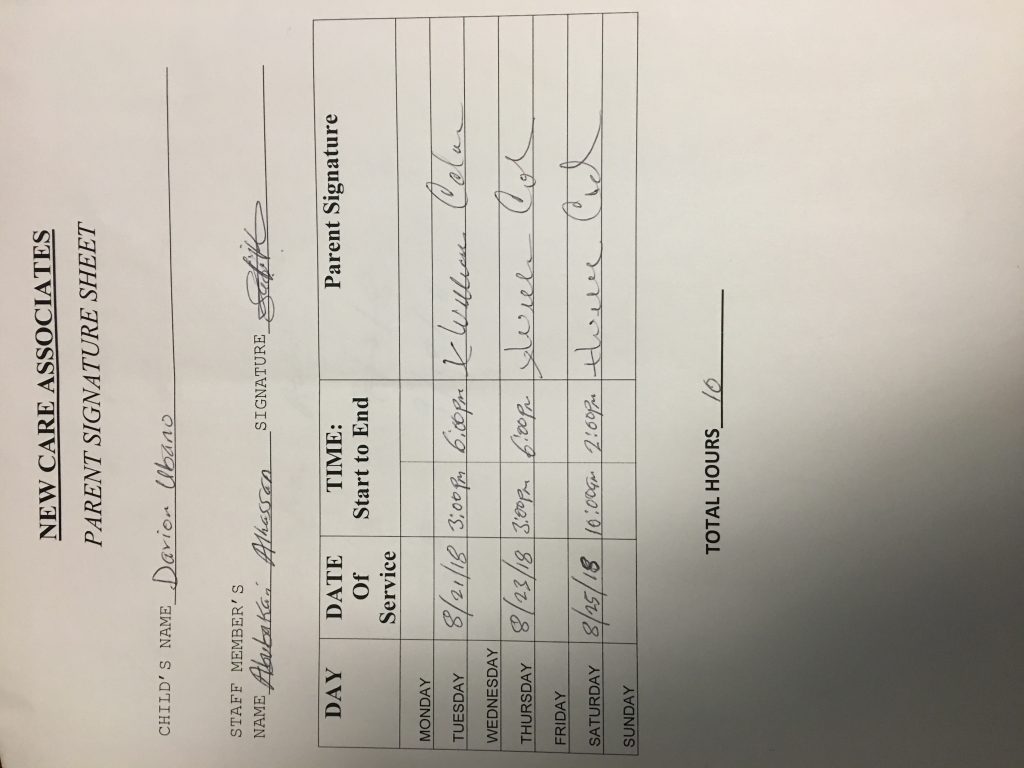 NEW CARE ASSOCIATES
PARENT SIGNATURE SHEET
CHILD'S NAME Darion Urbano
STAFF MEMBER'S
NAME Abubakari Alhassan SIGNATURE
DAY DATE Of Service TIME: Start to End Parent Signature
MONDAY
TUESDAY 8/21/18 3:00pm 6:00pm K Williams
WEDNESDAY
THURSDAY 8/23/18 3:00pm 6:00pm
FRIDAY
SATURDAY 8/25/18 10:00am 2:00pm
SUNDAY
TOTAL HOURS 10